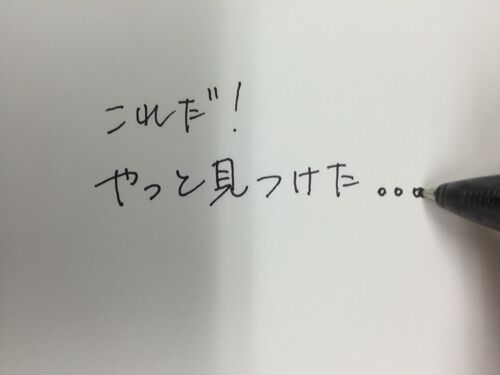 これだ!
やっと見つけた...